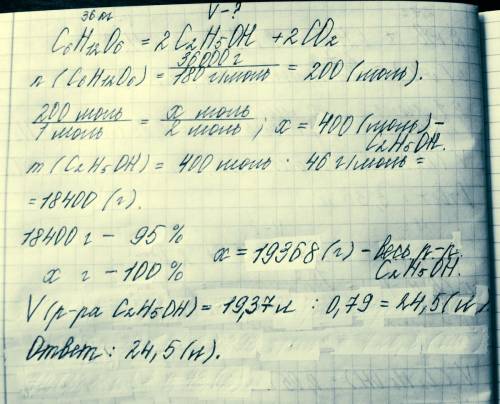 36 кг V-?
C6H12O6 = 2C2H5OH + 2CO2
n (C6H12O6) = 36000 г / 180 г/моль = 200 (моль).
200 моль / 1 моль = x моль / 2 моль ; x = 400 (моль) - C2H5OH.
m (C2H5OH) = 400 моль · 46 г/моль =
= 18400 (г).
18400 г - 95 %
x г - 100 % x = 19368 (г) - весь р-р C2H5OH.
V (р-ра C2H5OH) = 19,37 л : 0,79 = 24,5 (л)
Ответ: 24,5 (л).